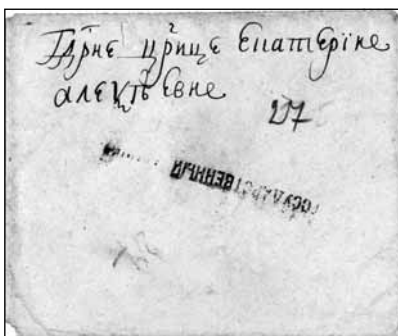 Гдрне црице Екатерїне
алеѯѣевне
217
ГОСУДАРСТВЕННЫЙ